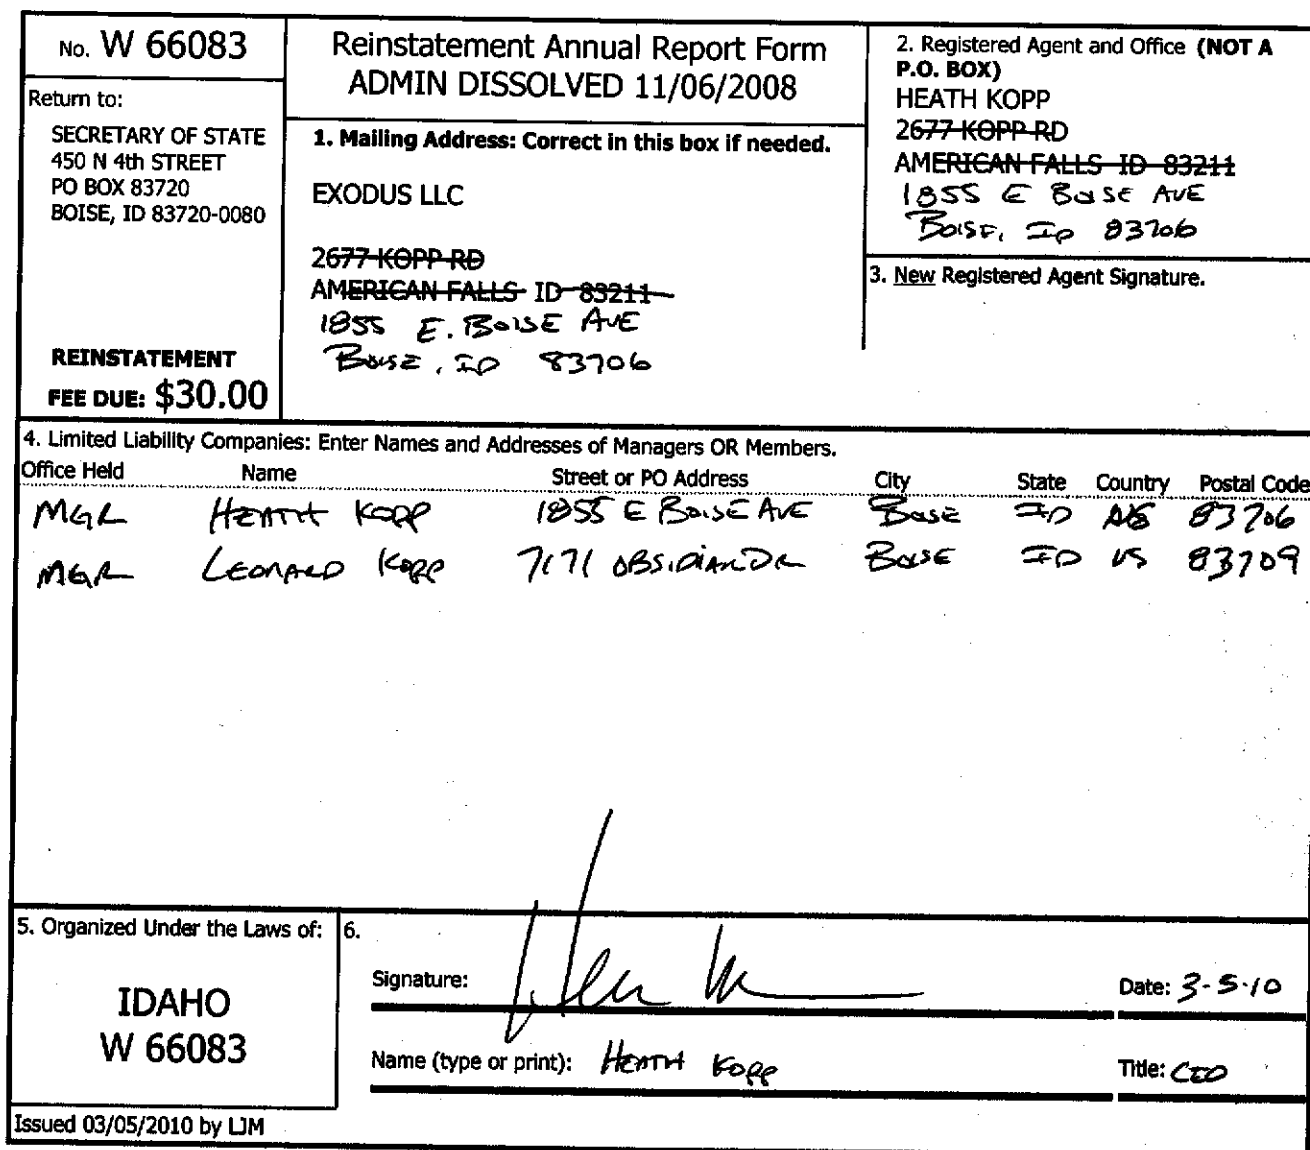 No. W 66083
Return to:
SECRETARY OF STATE
450 N 4th STREET
PO BOX 83720
BOISE, ID 83720-0080
REINSTATEMENT
FEE DUE: $30.00
Reinstatement Annual Report Form
ADMIN DISSOLVED 11/06/2008
1. Mailing Address: Correct in this box if needed.
EXODUS LLC
2677 KOPP RD
AMERICAN FALLS ID 83211
1855 E. BOISE AVE
BOISE, ID 83706
2. Registered Agent and Office (NOT A
P.O. BOX)
HEATH KOPP
2677 KOPP RD
AMERICAN FALLS ID 83211
1855 E BOISE AVE
BOISE, ID 83706
3. New Registered Agent Signature.
4. Limited Liability Companies: Enter Names and Addresses of Managers OR Members.
Office Held Name Street or PO Address City State Country Postal Code
MGR HEATH KOPP 1855 E BOISE AVE BOISE ID US 83706
MGR LEONARD KOPP 7171 OBSIDIAN DR BOISE ID US 83709
5. Organized Under the Laws of:
IDAHO
W 66083
Issued 03/05/2010 by LJM
6.
Signature:
Date: 3-5-10
Name (type or print): HEATH KOPP
Title: CEO